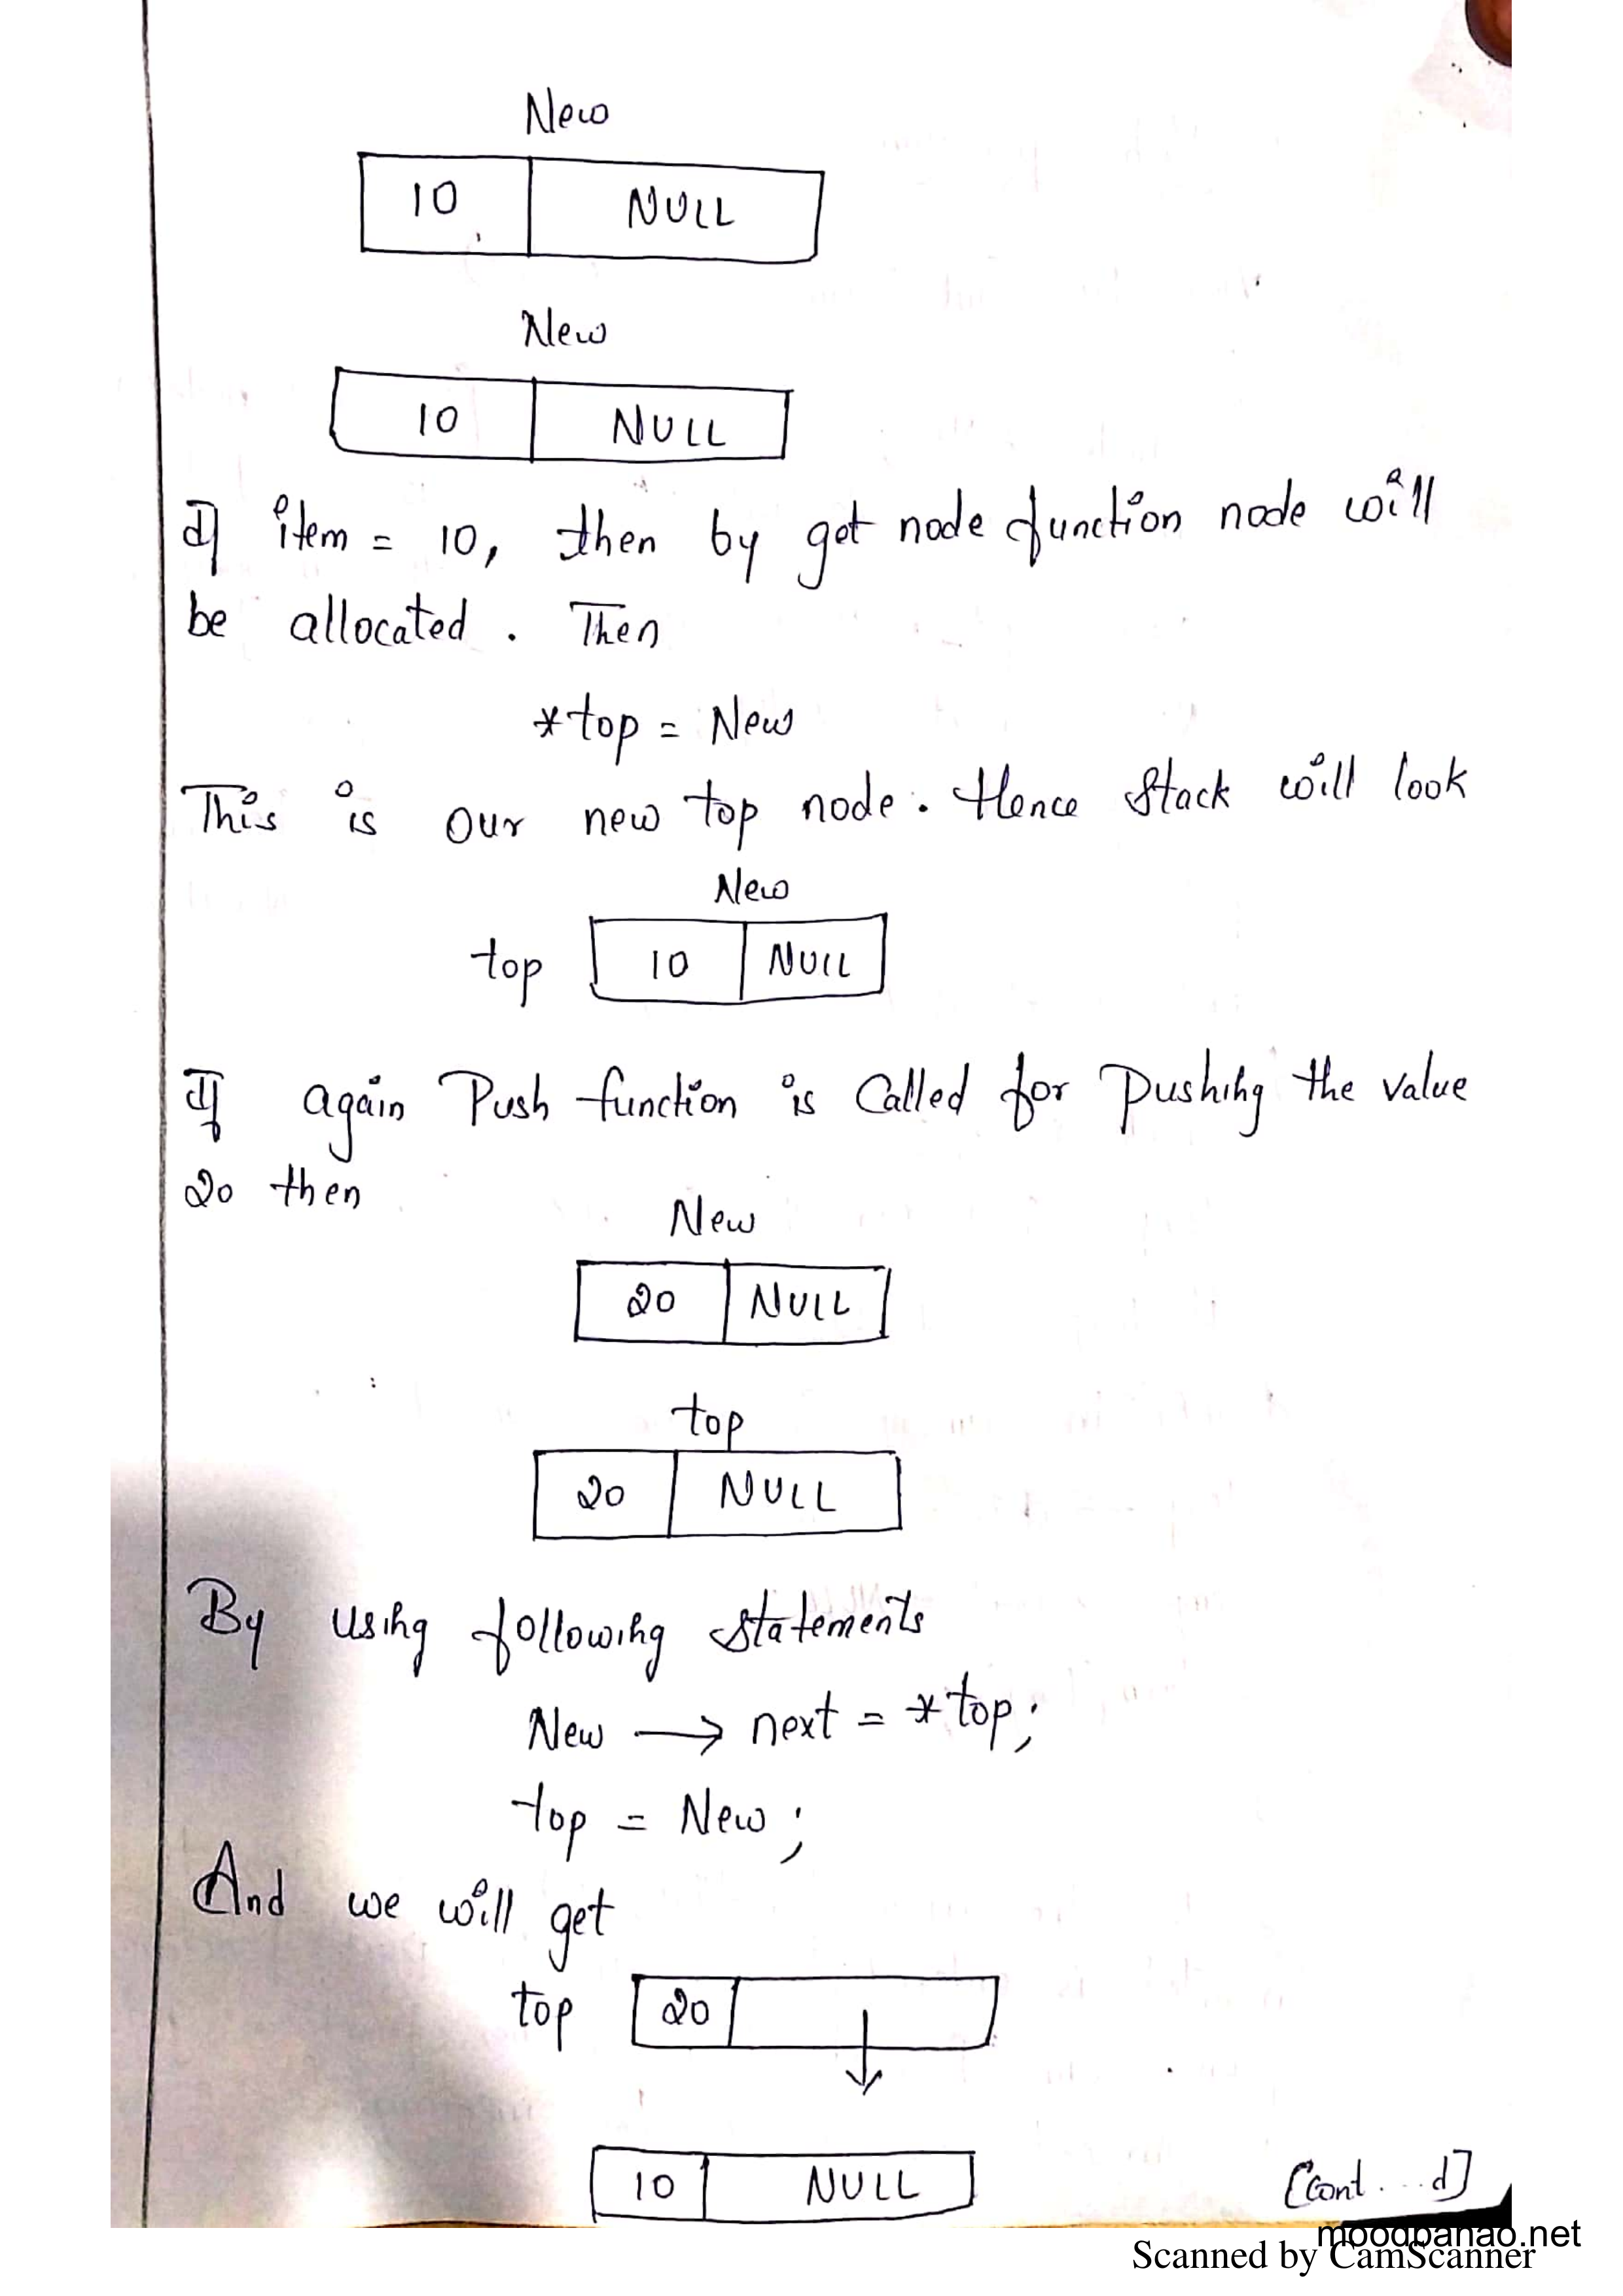 New
10 NULL
New
10 NULL
If item = 10, then by get node function node will
be allocated. Then
*top = New
This is our new top node. Hence Stack will look
New
top 10 NULL
If again Push function is Called for Pushing the value
20 then
New
20 NULL
top
20 NULL
By using following statements
New → next = *top;
top = New;
And we will get
top 20
10 NULL
[Cont...d]
moodbanao.net
Scanned by CamScanner